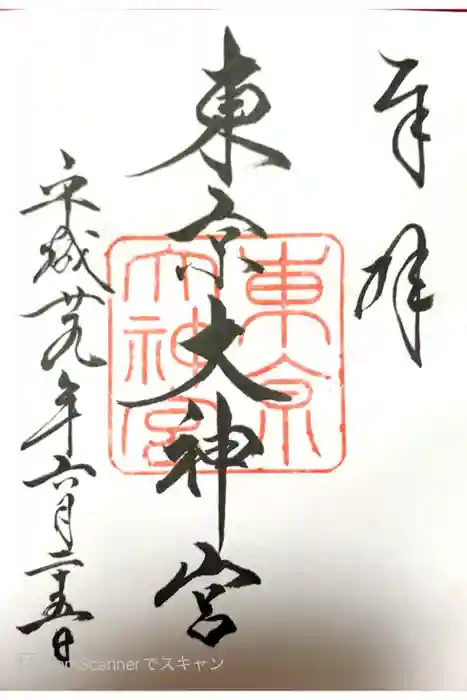 奉拝
東京大神宮
東京大神宮
平成廿九年六月二十五日
Scannerでスキャン